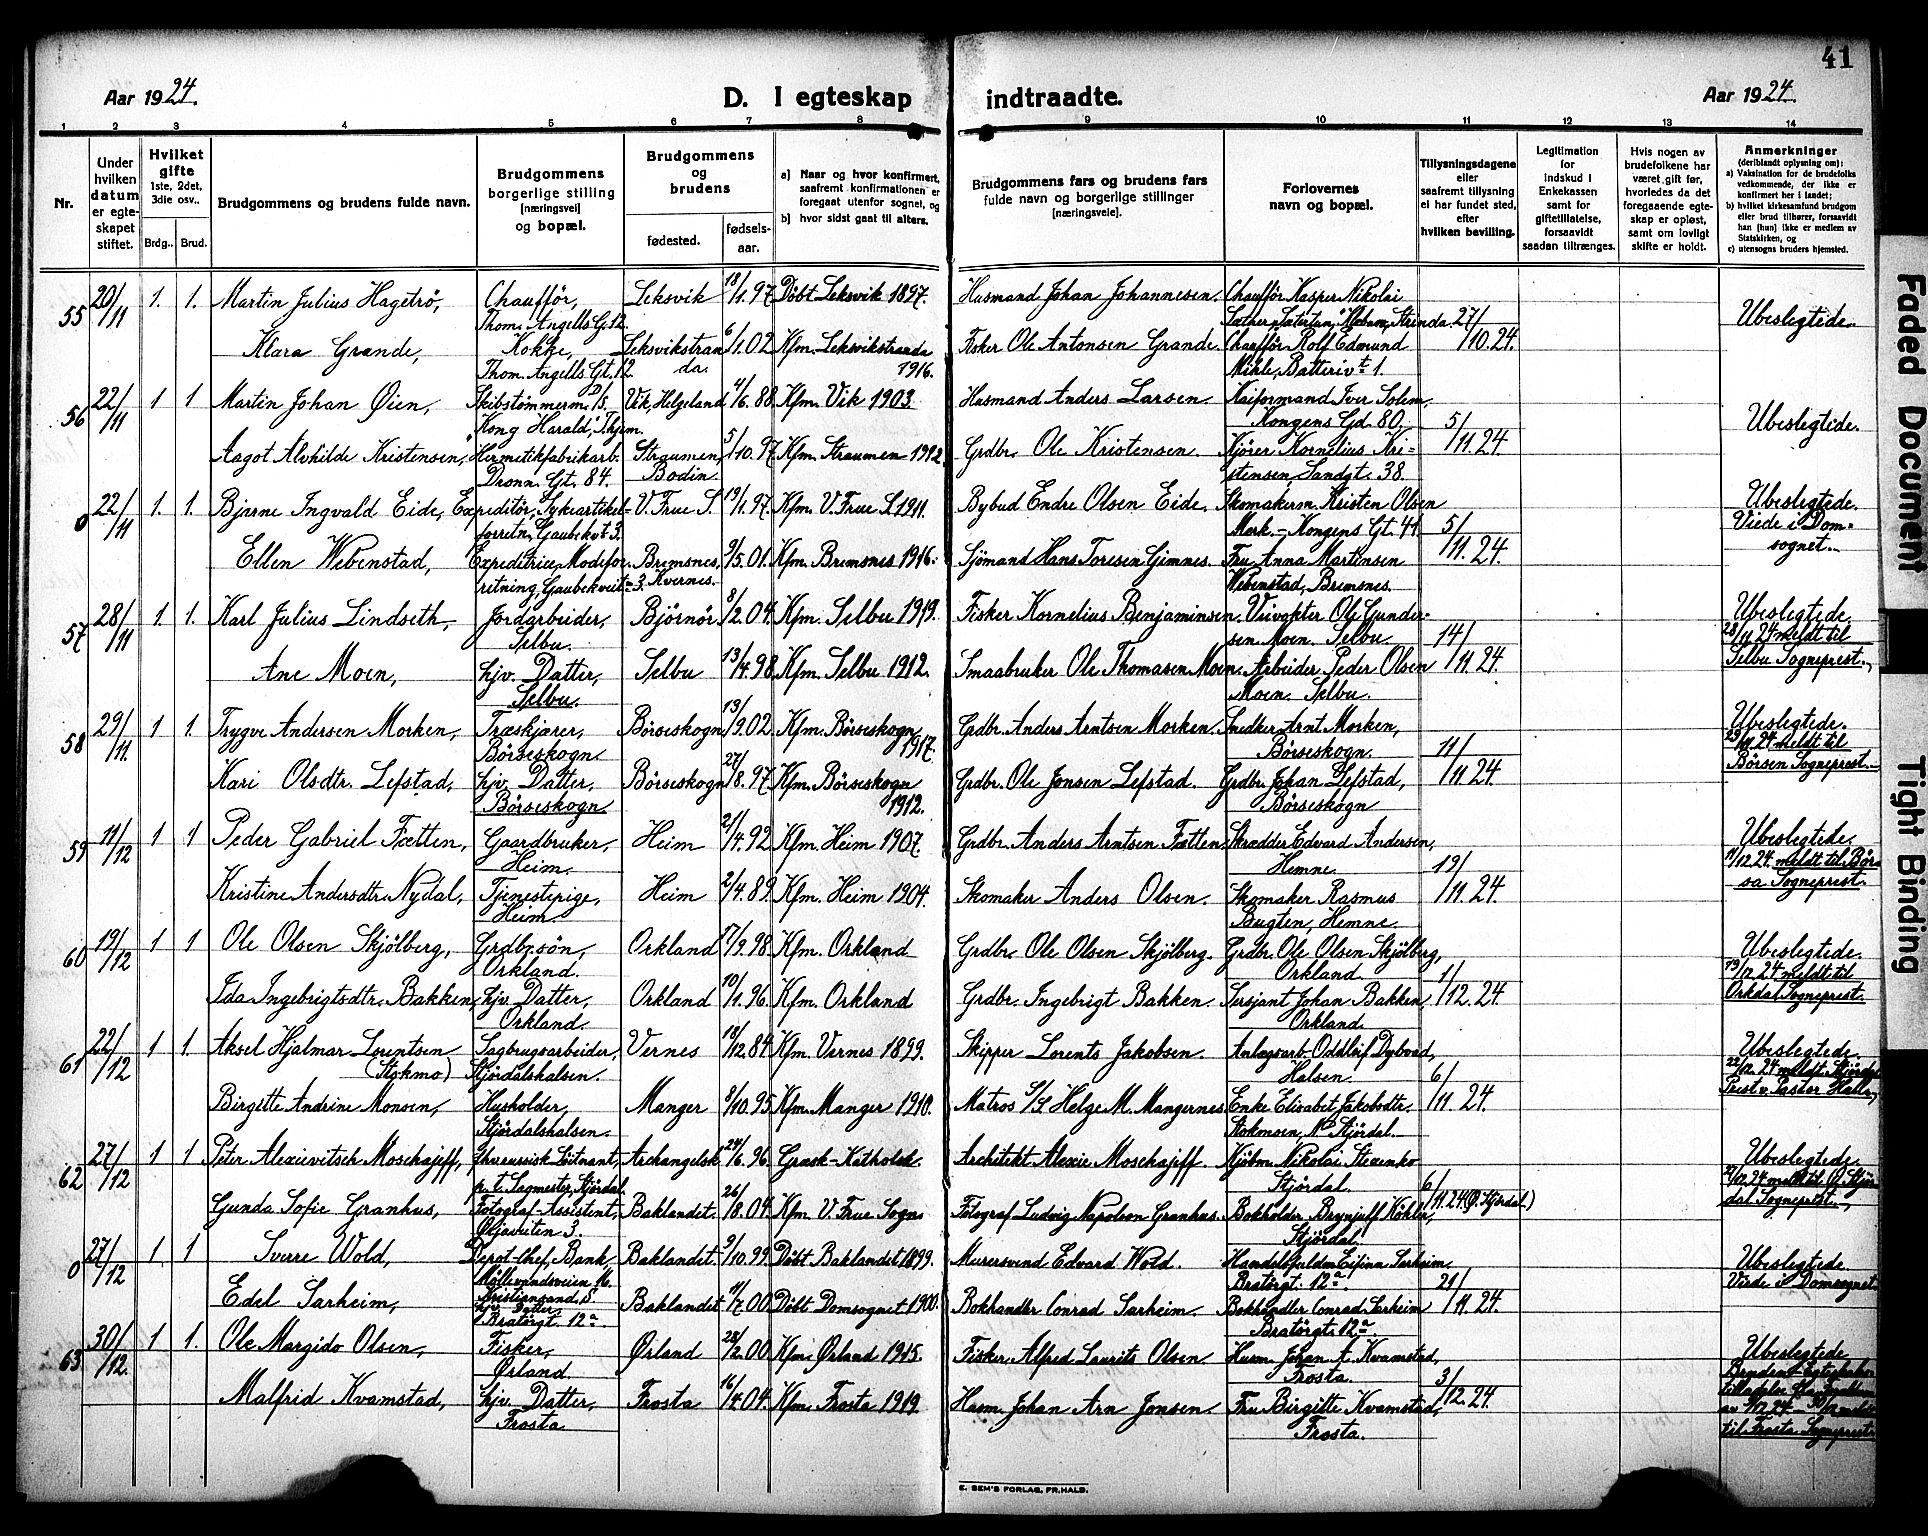 41
Aar 1924.
D. I egteskap indtraadte.
Aar 1924.
1 2 3 4 5 6 7 8 9 10 11 12 13 14
Nr.
Under hvilken datum er egte-skapet stiftet.
Hvilket gifte 1ste, 2det, 3die osv..
Brdg.. Brud.
Brudgommens og brudens fulde navn.
Brudgommens borgerlige stilling [næringsvei] og bopæl.
Brudgommens og brudens
fødested.
fødsels-aar.
a) Naar og hvor konfirmert, saafremt konfirmationen er foregaat utenfor sognet, og
b) hvor sidst gaat til alters.
Brudgommens fars og brudens fars fulde navn og borgerlige stillinger [næringsveie].
Forlovernes navn og bopæl.
Tillysningsdagene eller saafremt tillysning ei har fundet sted, efter hvilken bevilling.
Legitimation for indskud i Enkekassen samt for giftetillatelse, forsaavidt saadan tiltrænges.
Hvis nogen av brudefolkene har været gift før, hvorledes da det foregaaende egte-skap er opløst, samt om lovligt skifte er holdt.
Anmerkninger (deriblandt oplysning om):
a) Vaksination for de brudefolks vedkommende, der ikke er konfirmert her i landet;
b) hvilket kirkesamfund brudgom eller brud tilhører, forsaavidt han (hun) ikke er medlem av Statskirken, og
c) utensogns bruders hjemsted.
55 20/11 1. 1. Martin Julius Hagetrö, Chaufför, Thom. Angells G. 12. Leksvik 18/1.97 Döbt Leksvik 1897. Husmand Johan Johannesen. Chaufför Kasper Nikolai Sæther, Strinda. 27/10.24. Ubeslegtede.
Klara Grande, Kokke, Thom. Angells Gt. 12. Leksvikstranda. 6/1.02 Kfm. Leksvikstranda 1916. Fisker Ole Antonsen Grande. Chaufför Rolf Edmund Mihle, Batteriv. 1.
56 22/11 1 1 Martin Johan Øien, Skibstømmerm. D/S. "Kong Harald", Thjem. Vik, Helgeland 4/6.88 Kfm. Vik 1903. Husmand Anders Larsen. Kaiformand Iver Solem, Kongens Gd. 80. 5/11.24. Ubeslegtede.
Aagot Alvhilde Kristensen, Hermetikfabrikarb. Dronn. Gt. 84. Straumen, Bodin. 5/10.97 Kfm. Straumen 1912. Grdbr. Ole Kristensen. Kjörer Kornelius Kristensen, Sandgt. 38.
0 22/11 1. 1. Bjarne Ingvald Eide, Expeditör, Sykeartikel-forretn, Gaubekvt 3. V. Frue S. 19/1.97. Kfm. V. Frue S. 1911. Bybud Endre Olsen Eide. Skomakerm. Kristen Olsen Mork. - Kongens Gt. 41. 5/11.24. Ubeslegtede. Viede i Domsognet.
Ellen Webenstad, Expeditrice, Modeforretning, Gaubekveit 3. Bremsnes, Kvernes. 9/5.01. Kfm. Bremsnes 1916. Sjömand Hans Toresen Gimnes. Fru Anna Martinsen Webenstad, Bremsnes.
57 28/11 1 1. Karl Julius Lindseth, Jordarbeider, Selbu. Björnör 8/2.04. Kfm. Selbu 1919. Fisker Kornelius Benjaminsen. Veivokter Ole Gundersen Moen. Selbu. 14/11.24. Ubeslegtede. 28/11 24 meldt til Selbu Sogneprest.
Ane Moen, hjv. Datter, Selbu. Selbu 13/4.98 Kfm. Selbu 1912. Smaabruker Ole Thomasen Moen. Arbeider Peder Olsen Moen. Selbu.
58 29/11. 1 1. Trygve Andersen Morken, Træskjærer, Börseskogn. Börseskogn 13/9.02 Kfm. Börseskogn 1917. Grdbr. Anders Arntsen Morken. Snedker Arnt Morken, Börseskogn. 11/11.24. Ubeslegtede. 29/11.24 meldt til Börsen Sogneprest.
Kari Olsdtr. Lefstad, hjv. Datter, Börseskogn Börseskogn 27/8.97 Kfm. Börseskogn 1912. Grdbr. Ole Jonsen Lefstad. Grdbr. Johan Lefstad, Börseskogn
59 11/12 1 1 Peder Gabriel Fætten, Gaardbruker, Heim. Heim 21/4.92 Kfm. Heim 1907. Grdbr. Anders Arntsen Fætten. Skrædder Edvard Andersen, Hemne. 19/11.24. Ubeslegtede. 11/12 24. meldt til Börsa Sogneprest.
Kristine Andersdtr. Nydal, Tjenestepige, Heim. Heim 2/4.89. Kfm. Heim 1904. Skomaker Anders Olsen. Skomaker Rasmus Bugten, Hemne.
60 19/12 1 1 Ole Olsen Skjölberg, Grdbr.sön, Orkland. Orkland 17/9.98 Kfm. Orkland Grdbr. Ole Olsen Skjölberg. Grdbr. Ole Olsen Skjölberg, Orkland. 1/12.24. Ubeslegtede. 19/12 24 meldt til Orkdal Sogneprest.
Ida Ingebrigtsdtr. Bakken, hjv. Datter, Orkland. Orkland 10/1.96. Kfm. Orkland Grdbr. Ingebrigt Bakken. Sersjant Johan Bakken, Orkland.
61 22/12 1 1. Aksel Hjalmar Lorentsen (Stokmo) Sagbrugsarbeider, Stjördalshalsen. Vernes 18/12.84 Kfm. Vernes 1899. Skipper Lorents Jakobsen. Anlægsarb. Oddleif Dybvad, Halsen. 6/11.24. Ubeslegtede. 22/12 24 meldt Stjördal Prest v. Pastor Halle,
Birgitte Andrine Monsen, Husholder, Stjördalshalsen. Manger 9/10.95 Kfm. Manger 1910. Matros S/S Helge M. Mangernes Enke Elisabet Jakobsdtr. Stokmoen, N. Stjördal.
62 27/12 1 1 Peter Alexievitsch Moschajeff, fhv. russisk Löitnant, p.t. Sagmester, Stjördal. Archangelsk 24/6.96 Græsk-Katholsk. Architekt Alexie Moschajeff. Kjöbm. Nikolai Stevenko Stjördal. 6/11.24 (Ø. Stjördal.) Ubeslegtede. 27/12 24 meldt til Ø. Stjördal Sogneprest.
Gunda Sofie Granhus, Fotograf-Assistent, Øfjaveiten 3. Baklandet. 26/8.04. Kfm. V. Frue Sogn Fotograf Ludvig Napoleon Granhus. Bokholder Brynjulf Köhler, Stjördal.
0 27/12 1. 1 Sverre Wold, Depot-Chef, Bank, Möllevandsveien 16. Kristiansand, S. Baklandet. 9/10.99. Döbt Baklandet 1899. Murersvend Edvard Wold. Handelsfuldm. Eifinn Sarheim. Bratörgt. 12a. 21/11.24. Ubeslegtede. Viede i Domsognet.
Edel Sarheim, hjv. Datter, Bratörgt. 12a. Baklandet 11/7.00 Döbt Domsognet 1900. Bokhandler Conrad Sarheim. Bokhandler Conrad Sarheim Bratörgt. 12a.
63 30/12. 1 1. Ole Margido Olsen, Fisker, Ørland. Ørland 28/2.00 Kfm. Ørland 1915. Fisker Alfred Laurits Olsen Husm. Johan A. Kvamstad, Frosta. 3/12.24. Ubeslegtede
Malfrid Kvamstad, hjv. Datter, Frosta Frosta 16/4.04. Kfm. Frosta 1919. Husm. Johan Arn Jonsen Fru Birgitte Kvamstad, Frosta. til Frosta Sogneprest.
E. SEM'S FORLAG, FR.HALD.
Faded Document
Tight Binding